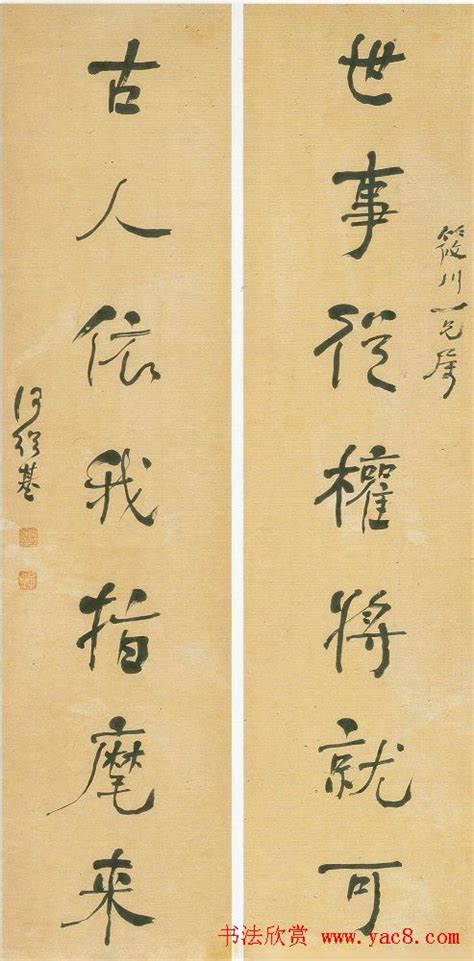 筱川一兄屬
世事從權將就可
古人依我指麾來
何紹基
书法欣赏 www.yac8.com